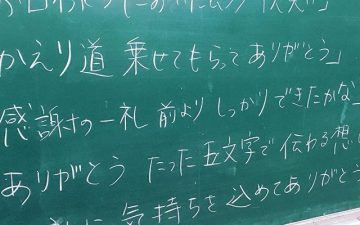 かえり道 乗せてもらってありがとう」
感謝の一礼 前より しっかりできたかな
ありがとう たった五文字で伝わる想
に気持ちを込めてありがとう